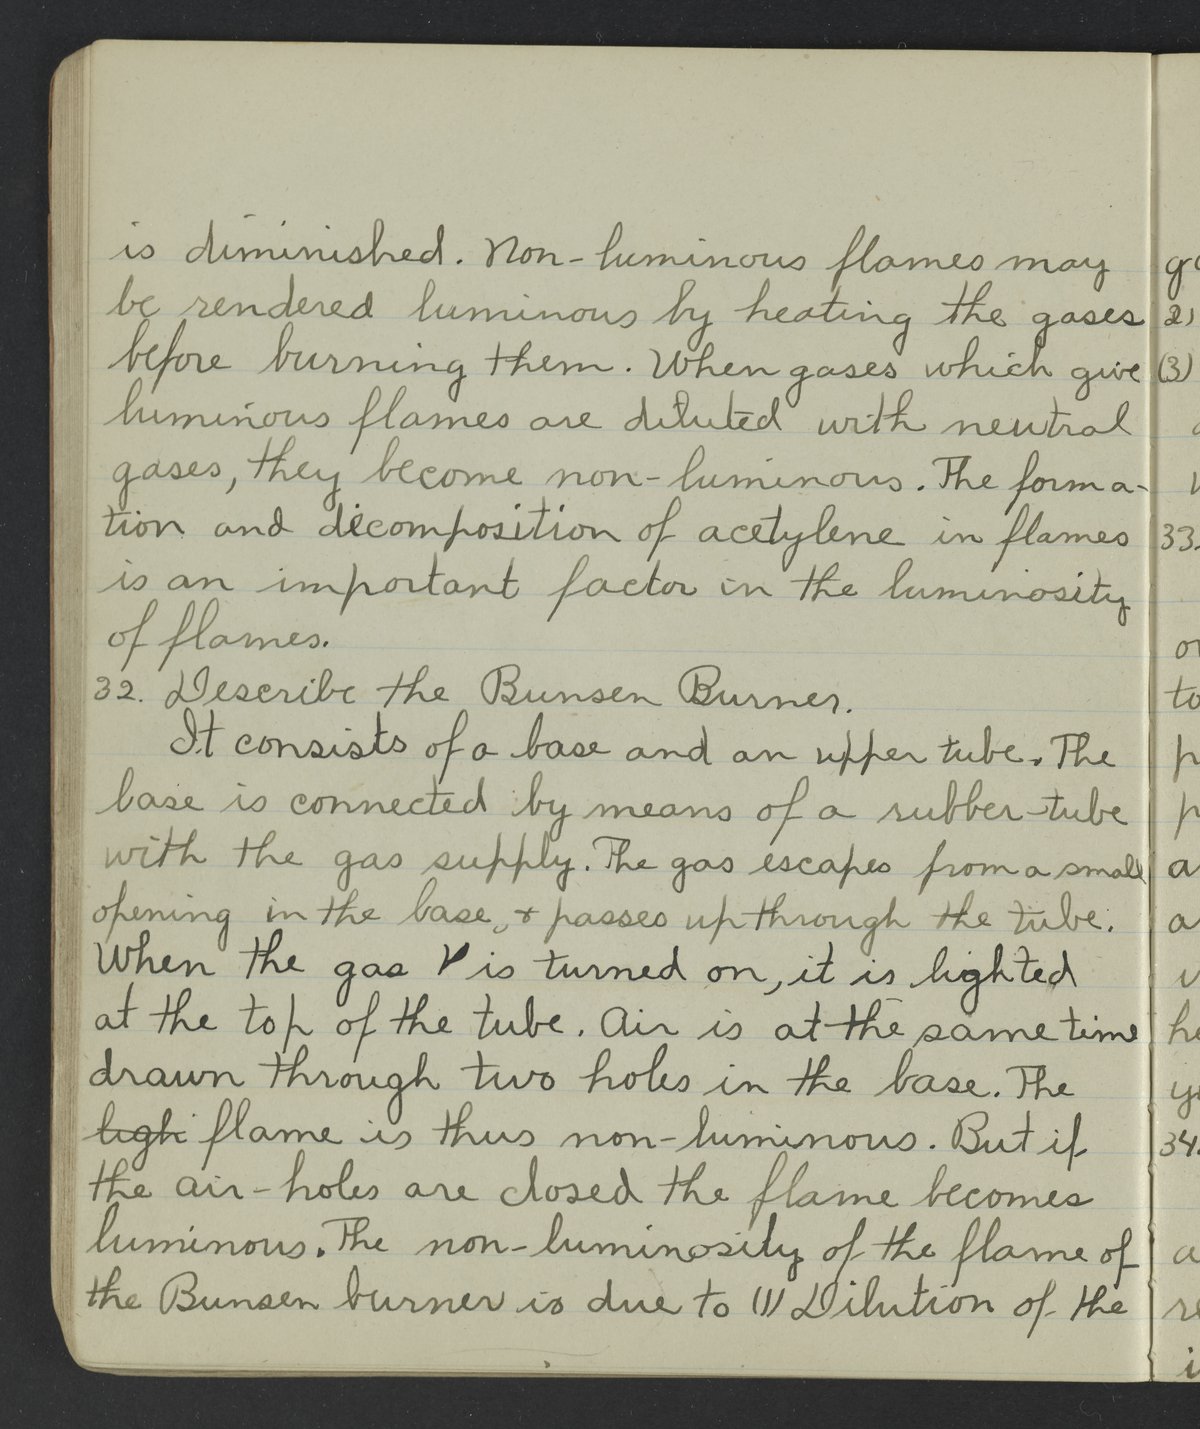 is diminished. Non-luminous flames may
be rendered luminous by heating the gases
before burning them. When gases which give
luminous flames are diluted with neutral
gases, they become non-luminous. The forma-
tion and decomposition of acetylene in flames
is an important factor in the luminosity
of flames.
32. Describe the Bunsen Burner.
It consists of a base and an upper tube. The
base is connected by means of a rubber-tube
with the gas supply. The gas escapes from a small
opening in the base, & passes up through the tube.
When the gas is turned on, it is lighted
at the top of the tube. Air is at the same time
drawn through two holes in the base. The
ligh flame is thus non-luminous. But if
the air-holes are closed the flame becomes
luminous. The non-luminosity of the flame of
the Bunsen burner is due to (1) Dilution of the
2)
(3)
33.
34.